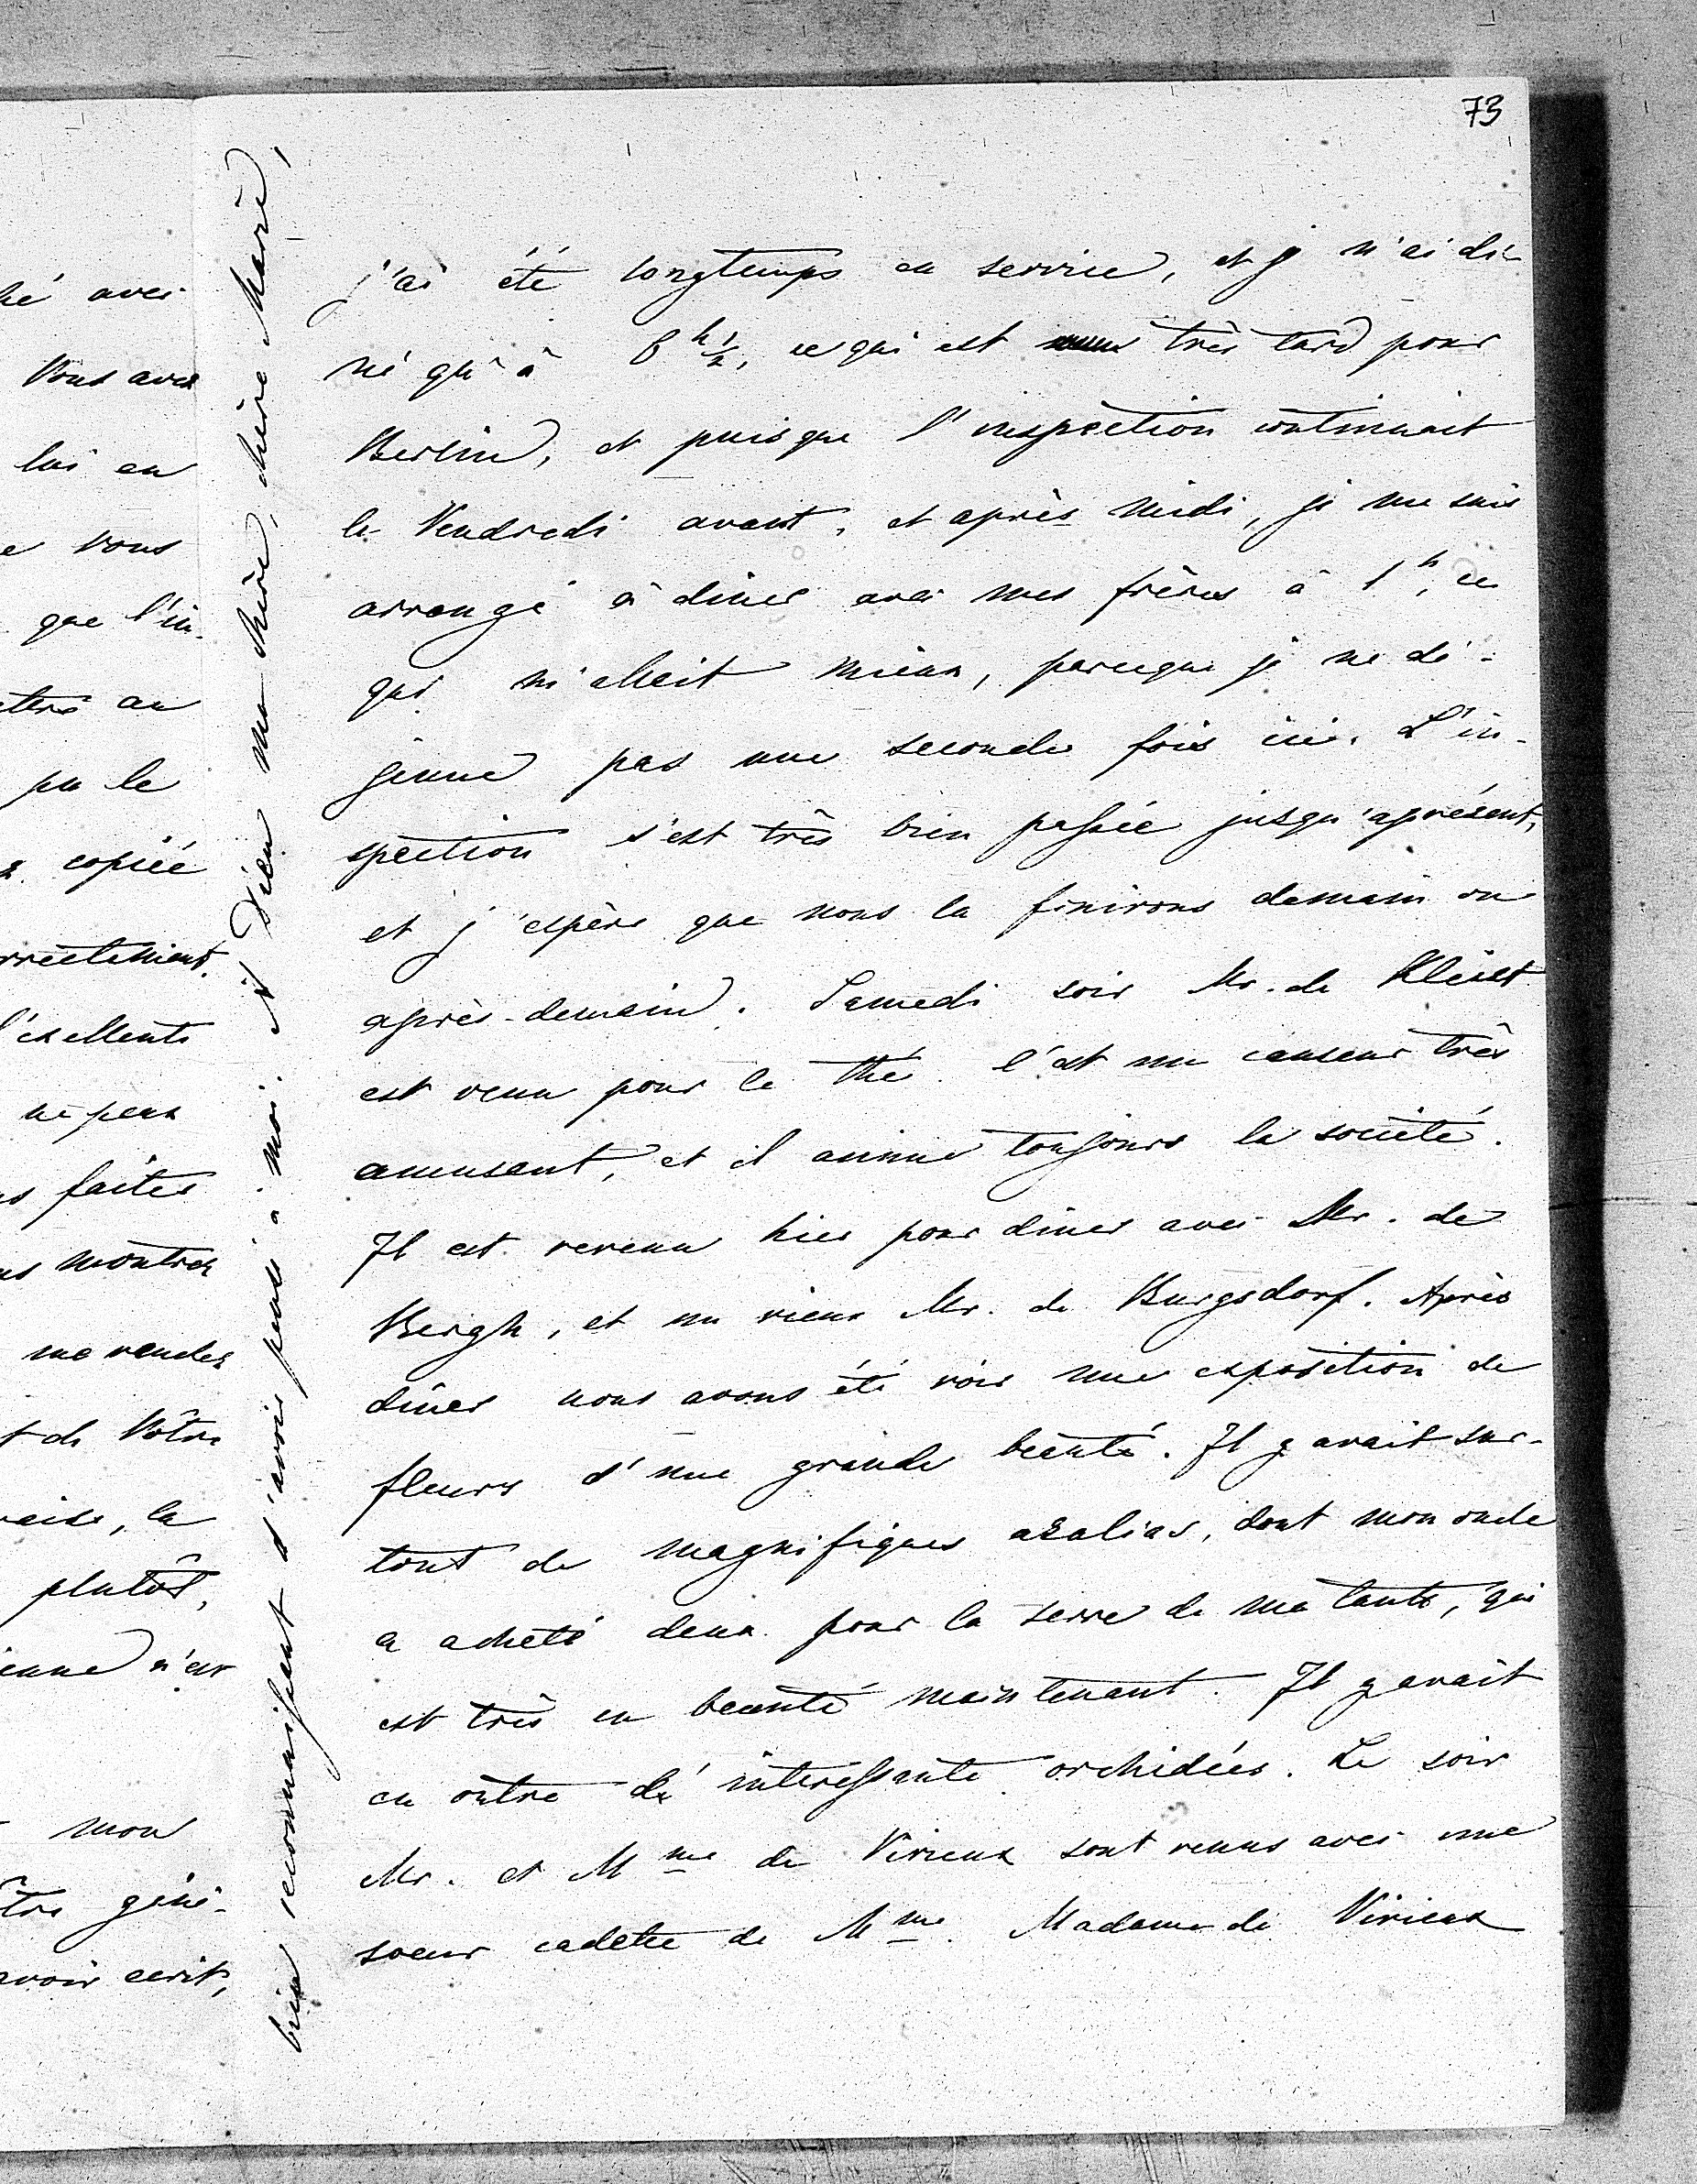 73
hé avec
Vous avez
lui en
e vous
que l'in-
pu le
copiée
rrectement.
l'exellente
ne peux
s faites
us montrer
me rendez
t de Vôtre
aise, la
plutôt,
ienne n'est
mon
tre géné-
avoir ecrit,
bien reconnaissant d'avoir pensé à moi. A Dieu ma chère, chère Marie,
j'ai été longtemps en service, et je n'ai dî-
né qu'à 6 h ½, ce qui est très tard pour
Berlin, et puisque l'inspection continuait
le Vendredi avant, et après midi, je me suis
arrangé à dîner avec mes frères à 1 h, ce
qui m'allait mieux, parceque je ne dé-
jeune pas une seconde fois ici. L'in-
spection s'est très bien passée jusqu'aprésent,
et j'espère que nous la finirons demain ou
après-demain. Samedi soir Mr. de Kleist
est venu pour le thé. C'est un causeur très
amusant, et il anime toujours la société.
Il est revenu hier pour dîner avec Mr. de
Bergh, et un vieux Mr. de Burgsdorf. Après
dîner nous avons été voir une exposition de
fleurs d'une grande beauté. Il y avait sur-
tout de magnifiques azalias, dont mon oncle
a acheté deux pour la serre de ma tante, qui
est très en beauté maintenant. Il y avait
en outre de interessante orchidées. Le soir
Mr. et Mme de Virieux sont venus avec une
soeur cadette de Mme. Madame de Virieux